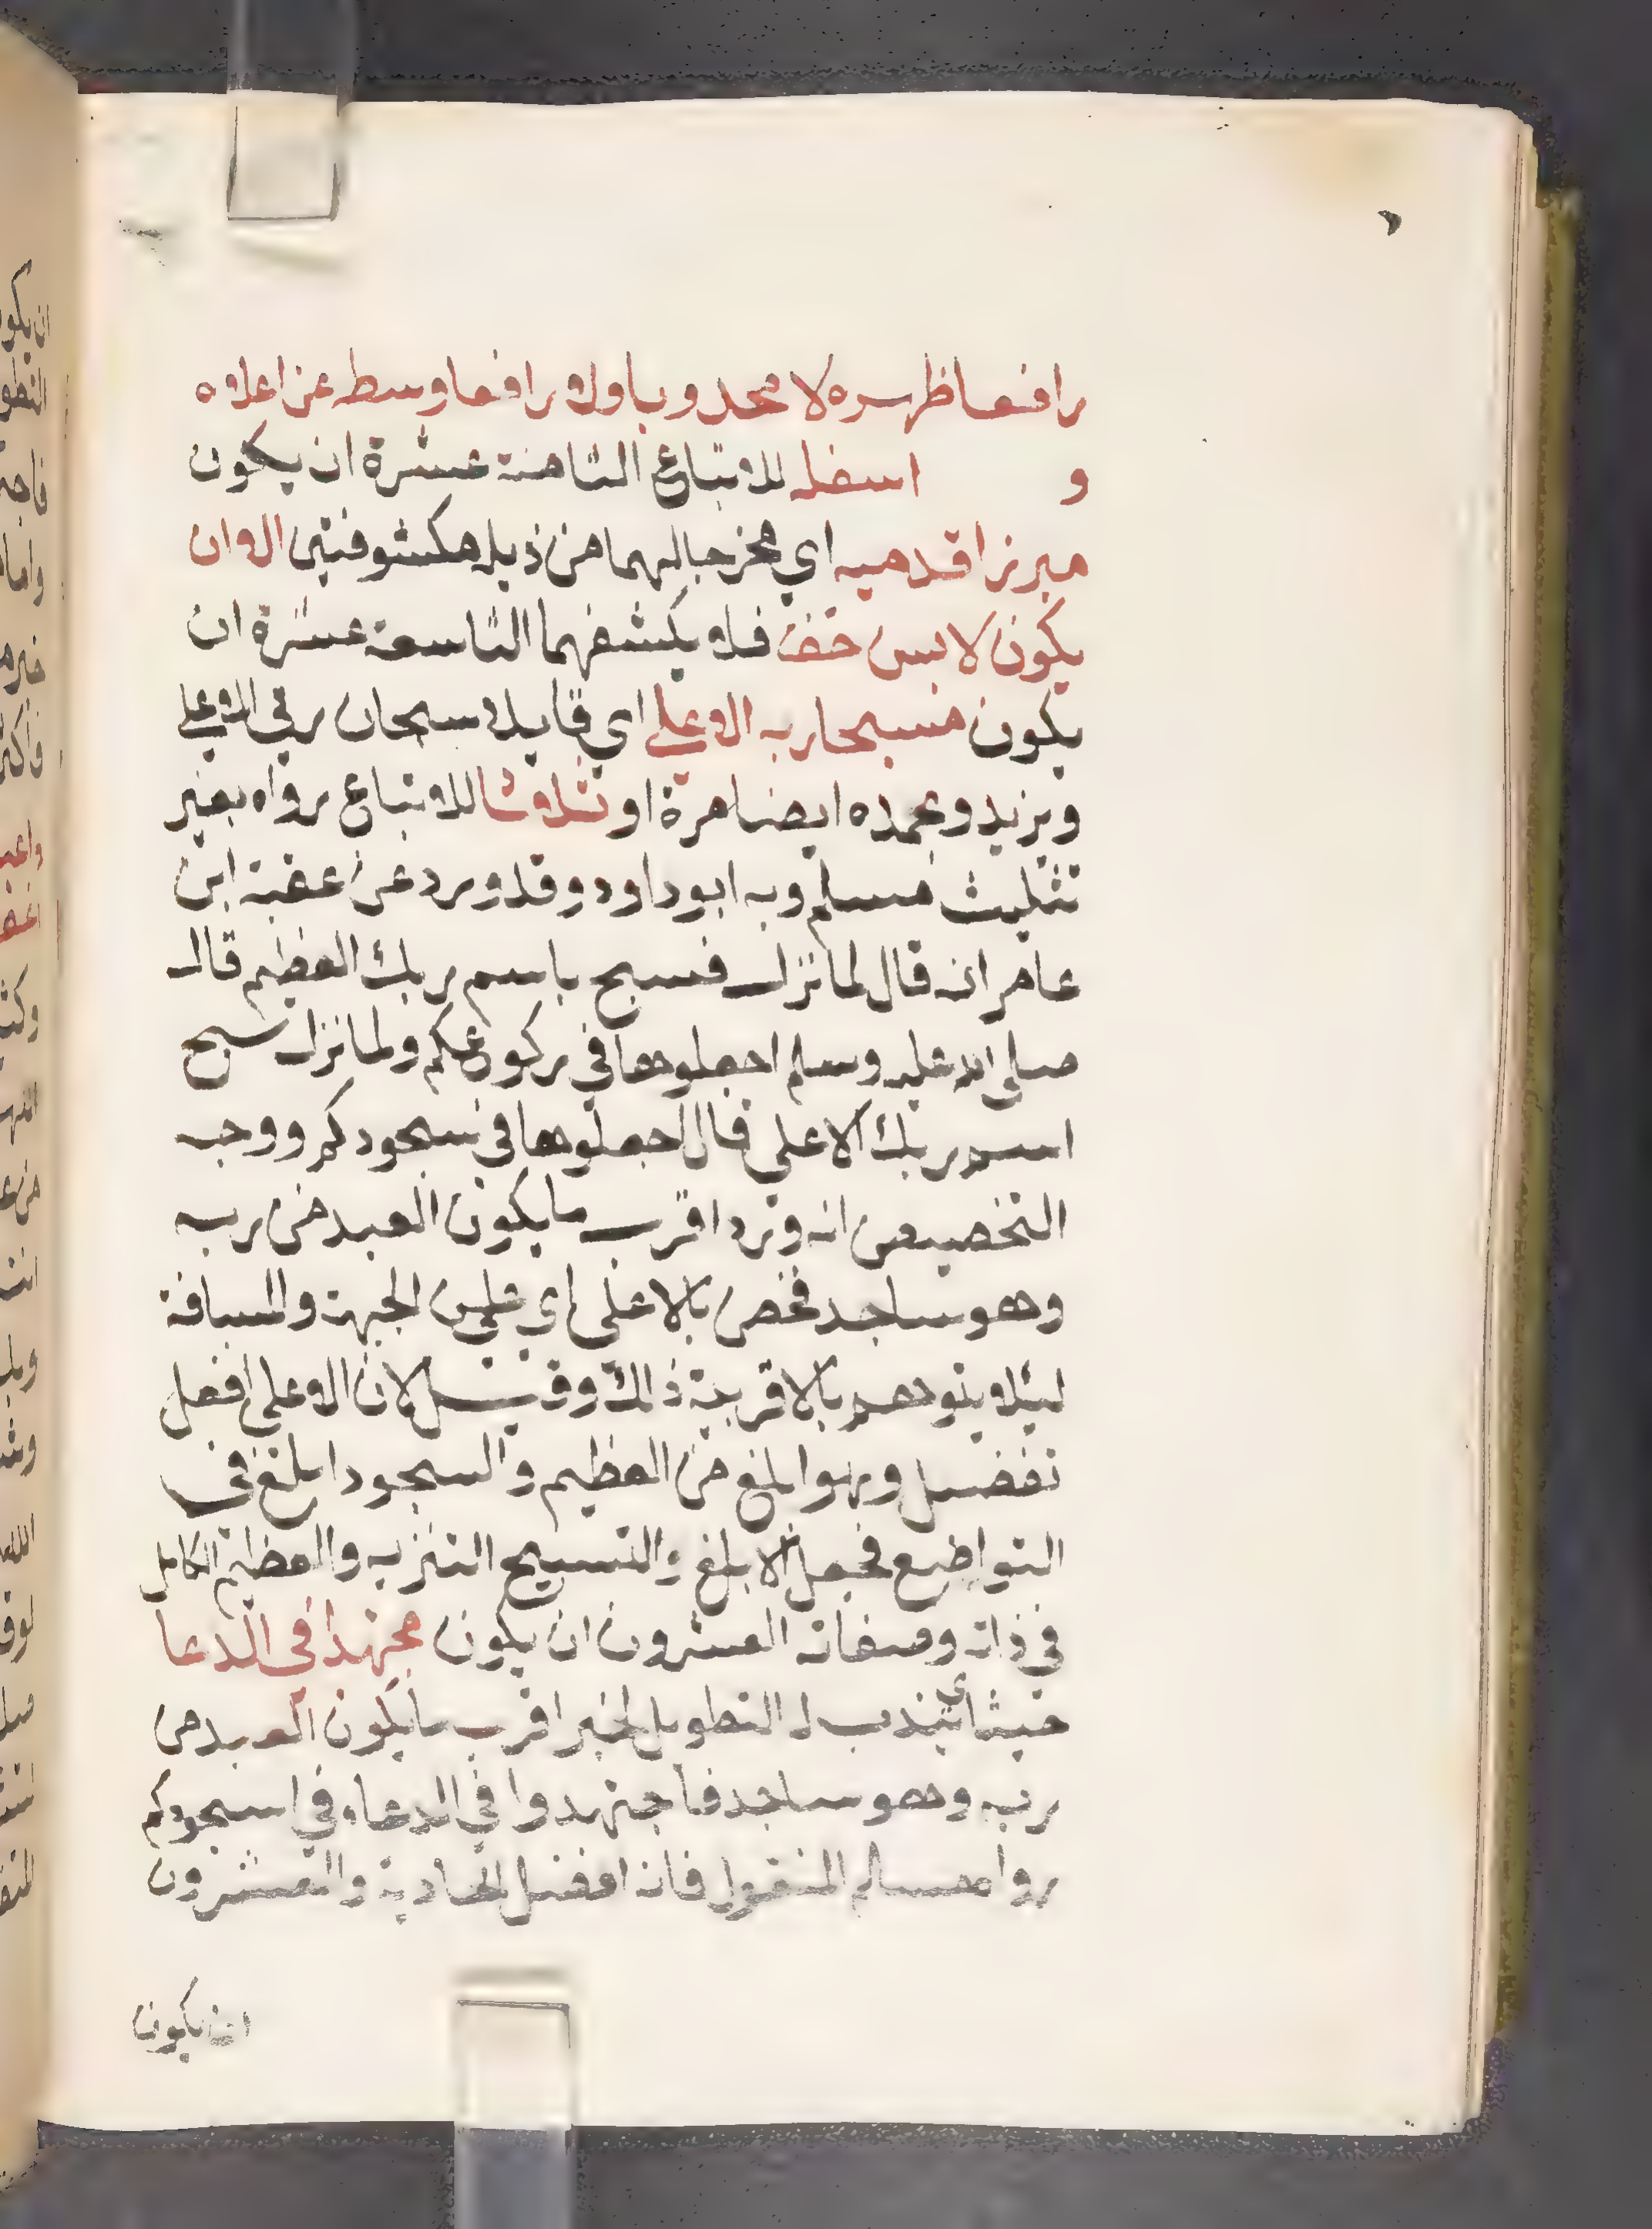 رافعا ظهره لا محدوبا ولا رافعا وسطه عن اعلاه
و اسفله للاتباع الثامنة عشرة ان يكون
مبرزا قدميه اي مخرجا لهما من ذيله مكشوفتين الا ان
يكون لابس خف فلا يكشفهما التاسعة عشرة ان
يكون مسبحا ربه الاعلى اي قايلا سبحان ربي الاعلي
ويزيد وبحمده ايضا مرة او ثلاثا للاتباع رواه بغير
تثليث مسلم وبه ابو داود وقد ورد عن عقبة ابن
عامر انه قال لما نزل فسبح باسم ربك العظيم قال
صلى الله عليه وسلم اجعلوها في ركوعكم ولما نزل سبح
اسم ربك الاعلى قال اجعلوها في سجودكم ووجه
التخصيص انه ورد اقرب ما يكون العبد من ربه
وهو ساجد فخص بالاعلى اي عن الجهة والمسافة
ليئلا يتوهم بالاقربية ذالك وقيل لان الاعلى افعل
تفضيل وهو ابلغ من العظيم والسجود ابلغ في
التواضع فجعل الابلغ والتسبيح التنزيه والعظيم الكامل
في ذاته وصفاته العشرون ان يكون مجتهدا في الدعا
حيث يندب له التطويل لخبر اقرب ما يكون العبد من
ربه وهو ساجد فاجتهدوا في الدعاء في اسجودكم
رواه مسلم المنقول فانه افضل الحادية والعشرون
ان يكون